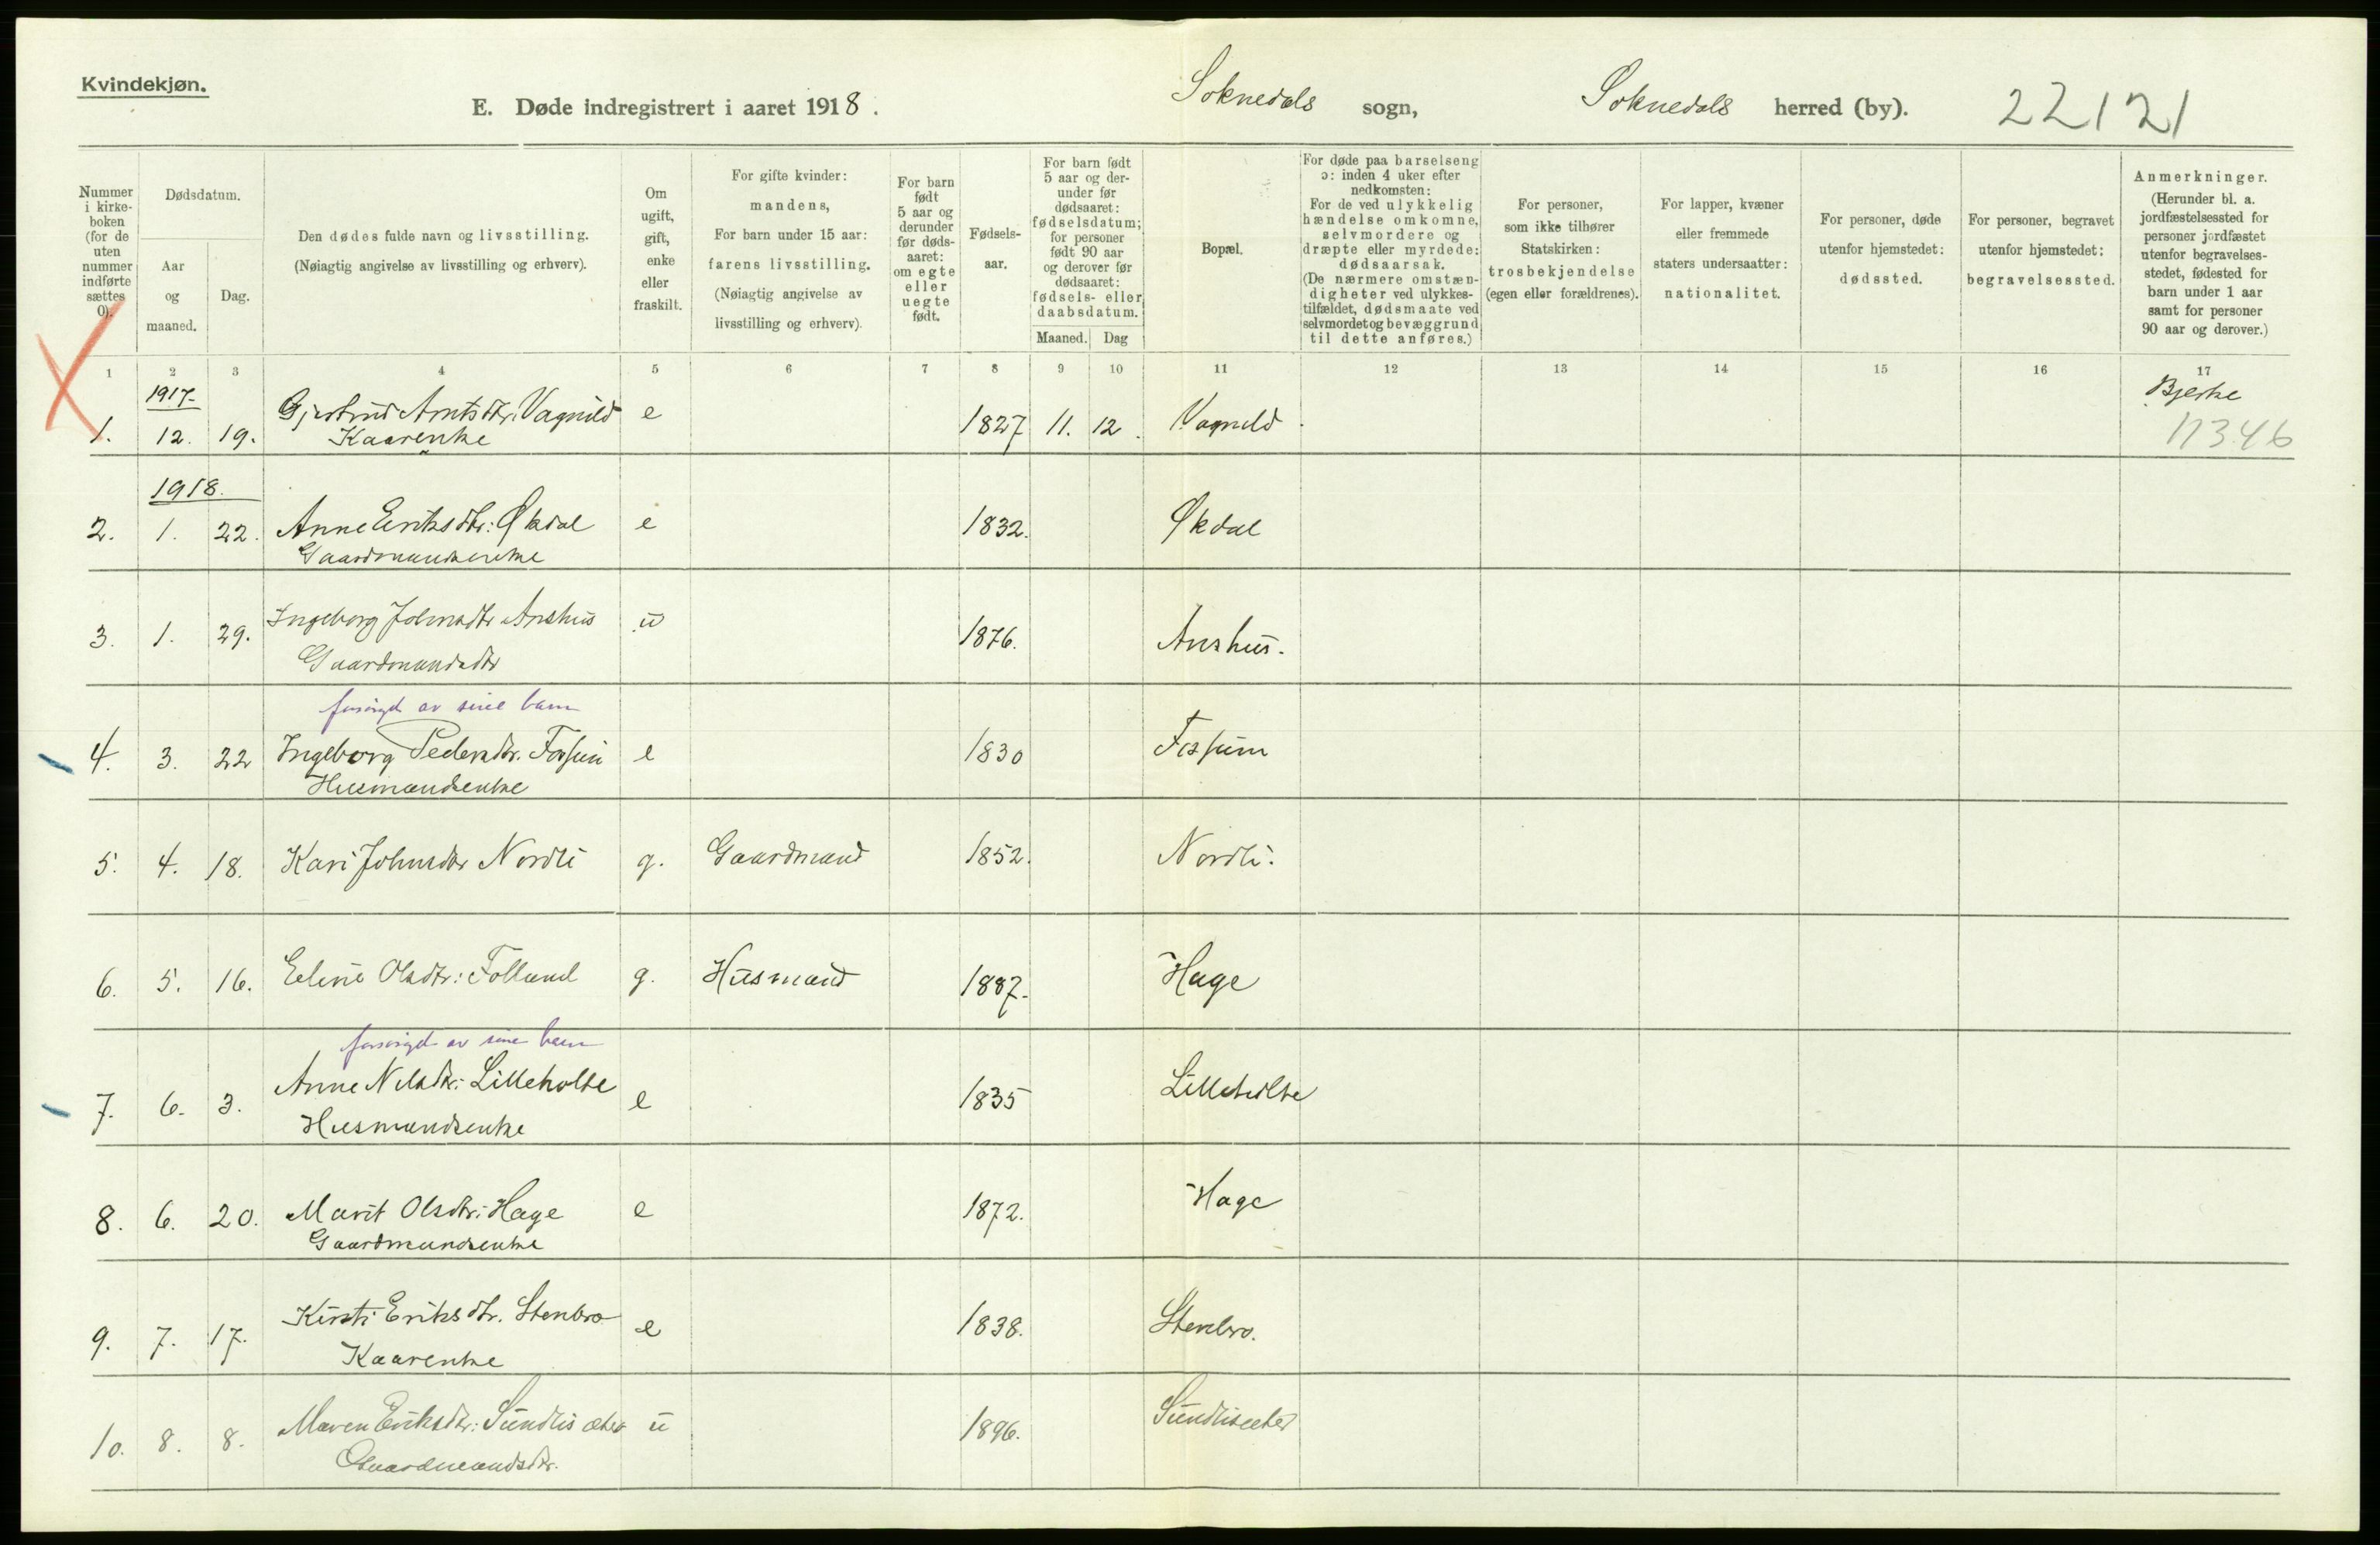 Kvindekjøn.
E. Døde indregistrert i aaret 1918.
Soknedals sogn, Soknedals herred (by). 22121
Nummer i kirke-boken (for de uten nummer indførte sættes 0).
Dødsdatum.
Aar og maaned.
Dag.
Den dødes fulde navn og livsstilling.
(Nøiagtig angivelse av livsstilling og erhverv).
Om ugift, gift, enke eller fraskilt.
For gifte kvinder: mandens, For barn under 15 aar: farens livsstilling. (Nøiagtig angivelse av livsstilling og erhverv).
For barn født 5 aar og derunder før døds-aaret: om egte eller uegte født.
Fødsels-aar.
For barn født 5 aar og der-under før dødsaaret: fødselsdatum; for personer født 90 aar og derover før dødsaaret: fødsels- eller daabsdatum.
Maaned. Dag
Bopæl.
For døde paa barselseng ɔ: inden 4 uker efter nedkomsten: For de ved ulykkelig hændelse omkomne, selvmordere og dræpte eller myrdede: dødsaarsak. (De nærmere omstæn-digheter ved ulykkes-tilfældet, dødsmaate ved selvmordet og bevæggrund til dette anføres.)
For personer, som ikke tilhører Statskirken: trosbekjendelse (egen eller forældrenes).
For lapper, kvæner eller fremmede staters undersaatter: nationalitet.
For personer, døde utenfor hjemstedet: dødssted.
For personer, begravet utenfor hjemstedet: begravelsessted.
Anmerkninger. (Herunder bl. a. jordfæstelsessted for personer jordfæstet utenfor begravelses-stedet, fødested for barn under 1 aar samt for personer 90 aar og derover.)
1 2 3 4 5 6 7 8 9 10 11 12 13 14 15 16 17
1917
1. 12. 19. Gjertrud Arntsdtr. Vagnild e 1827 11. 12. Vagnild Bjerke
Kaarenke 17346
1918.
2. 1. 22. Anne Eriksdtr: Økdal e 1832. Økdal
Gaardmandsenke
3. 1. 29. Ingeborg Johnsdtr Anshus u 1876. Anshus.
Gaardmandsdtr
forsørget av sine barn
4. 3. 22 Ingeborg Pedersdtr. Fossum e 1830 Fossum
Husmandsenke
5. 4. 18. Kari Johnsdtr Nordli g. Gaardmand 1852. Nordli.
6. 5. 16. Eline Olsdtr: Folland g. Husmand 1887. Hage
forsørget av sine barn
7. 6. 3. Anne Nilsdtr: Lilleholte e 1835 Lilleholte
Husmandsenke
8. 6. 20. Marit Olsdtr: Hage e 1872. Hage
Gaardmandsenke
9. 7. 17. Kirsti Eriksdtr. Stenbro e 1838. Stenbro.
Kaarenke
10. 8. 8. Maren Eriksdtr: Sundlisæter u 1896. Sundlisæter
Gaardmandsdtr.